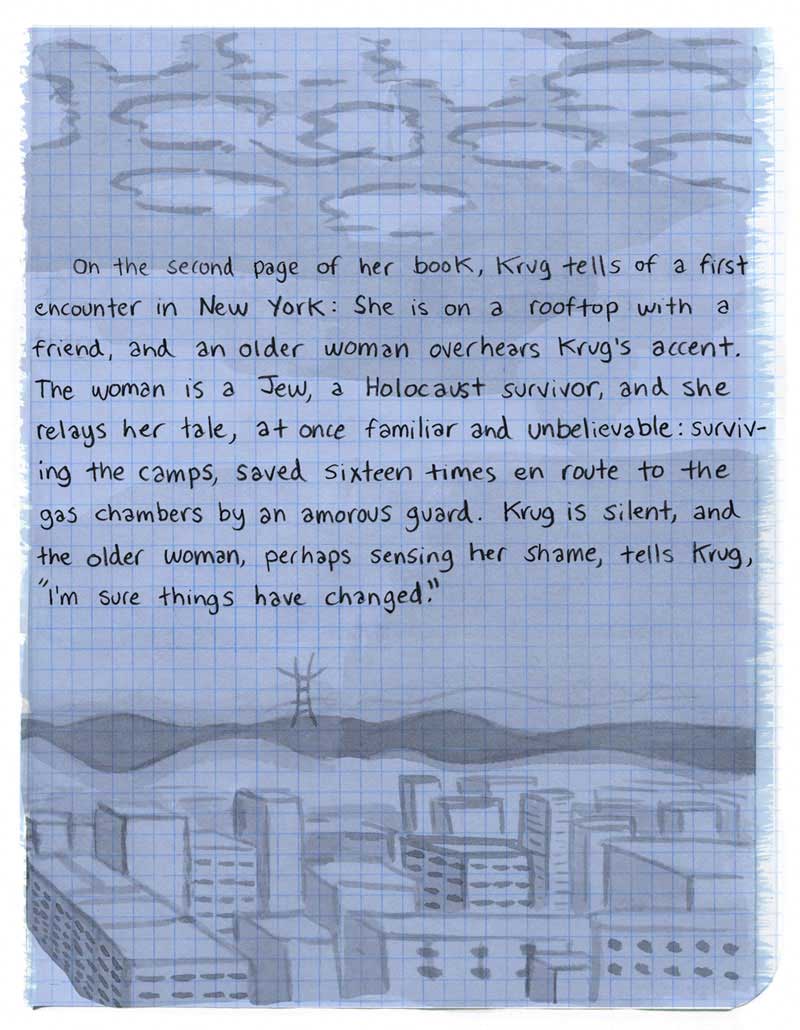 On the second page of her book, Krug tells of a first
encounter in New York: She is on a rooftop with a
friend, and an older woman overhears Krug's accent.
The woman is a Jew, a Holocaust survivor, and she
relays her tale, at once familiar and unbelievable: surviv-
ing the camps, saved sixteen times en route to the
gas chambers by an amorous guard. Krug is silent, and
the older woman, perhaps sensing her shame, tells Krug,
"I'm sure things have changed."